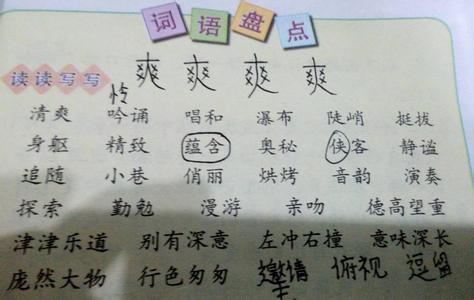 词语盘点
读读写写
爽 爽 爽 爽
怜
清爽 吟诵 唱和 瀑布 陡峭 挺拔
身躯 精致 蕴含 奥秘 侠客 静谧
追随 小巷 俏丽 烘烤 音韵 演奏
探索 勤勉 漫游 亲吻 德高望重
津津乐道 别有深意 左冲右撞 意味深长
庞然大物 行色匆匆 邀请 俯视 逗留